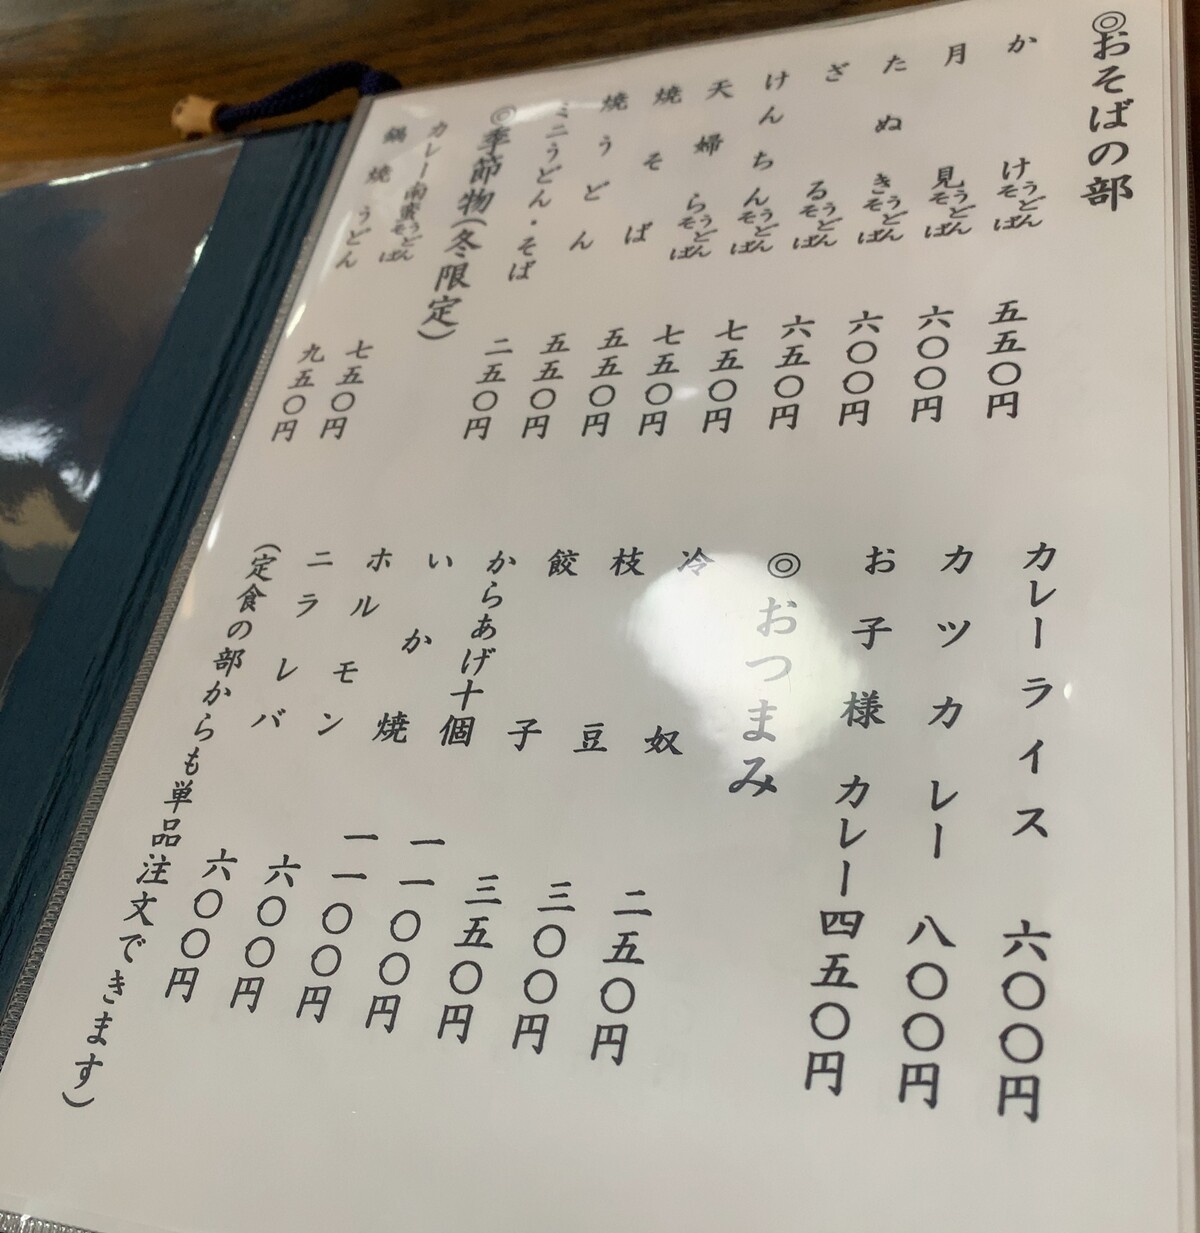 ◎おそばの部
かけうどんそば 五五〇円
月見うどんそば 六〇〇円
たぬきうどんそば 六〇〇円
ざるうどんそば 六五〇円
けんちんうどんそば 七五〇円
天婦らうどんそば 七五〇円
焼そば 五五〇円
焼うどん 五五〇円
ミニうどん・そば 二五〇円
◎季節物(冬限定)
カレー南蛮うどんそば 七五〇円
鍋焼うどん 九五〇円
カレーライス 六〇〇円
カツカレー 八〇〇円
お子様カレー 四五〇円
◎おつまみ
冷奴 二五〇円
枝豆 三〇〇円
餃子 三五〇円
からあげ十個 一一〇〇円
いか焼 一一〇〇円
ホルモン 六〇〇円
ニラレバ 六〇〇円
(定食の部からも単品注文できます)